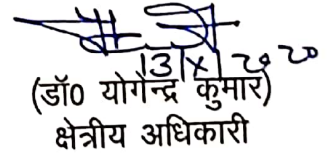 13|x|2020
(डॉ0 योगेन्द्र कुमार)
क्षेत्रीय अधिकारी